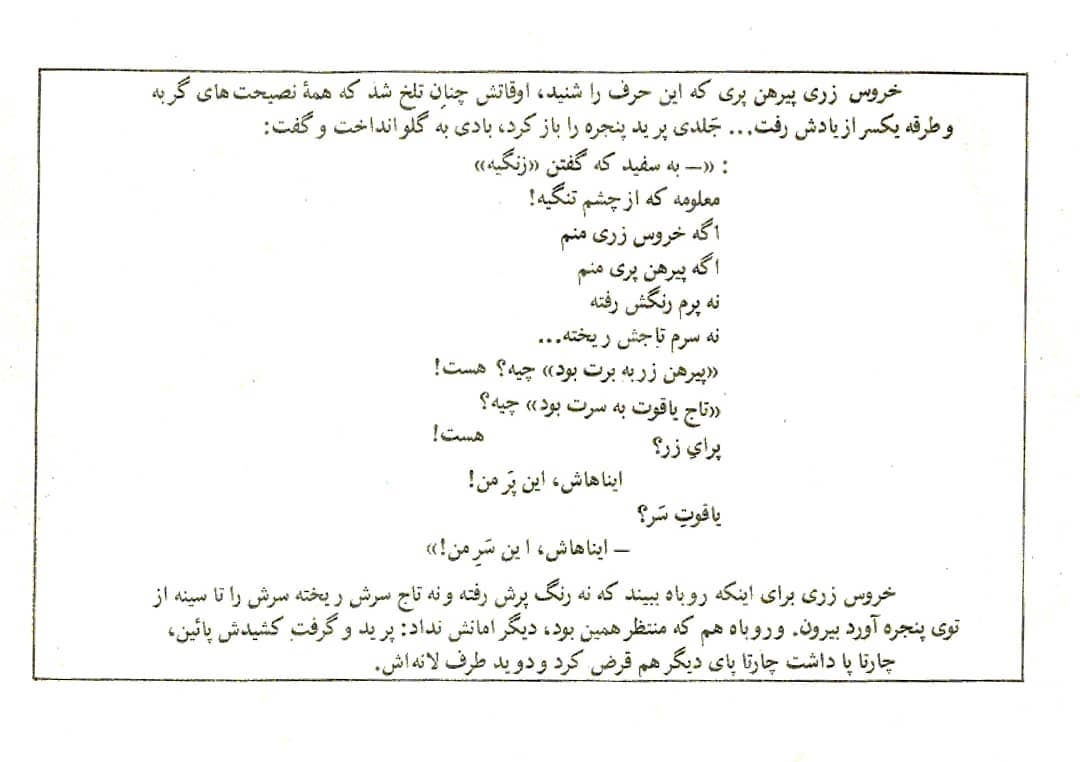 خروس زری پیرهن پری که این حرف را شنید، اوقاتش چنان تلخ شد که همهٔ نصیحت‌های گربه
و طرقه یکسر از یادش رفت... جَلدی پرید پنجره را باز کرد، بادی به گلو انداخت و گفت:
: «ــ به سفید که گفتن «زنگیه»
معلومه که از چشم تنگیه!
اگه خروس زری منم
اگه پیرهن پری منم
نه پرم رنگش رفته
نه سرم تاجش ریخته...
«پیرهن زر به برت بود» چیه؟ هست!
«تاج یاقوت به سرت بود» چیه؟
هست!
پرایِ زر؟
ایناهاش، این پَر من!
یاقوتِ سَر؟
ــ ایناهاش، این سَرِ من!»
خروس زری برای اینکه روباه ببیند که نه رنگ پرش رفته و نه تاج سرش ریخته سرش را تا سینه از
توی پنجره آورد بیرون. و روباه هم که منتظر همین بود، دیگر امانش نداد: پرید و گرفت کشیدش پائین،
چارتا پا داشت چارتا پای دیگر هم قرض کرد و دوید طرف لانه‌اش.